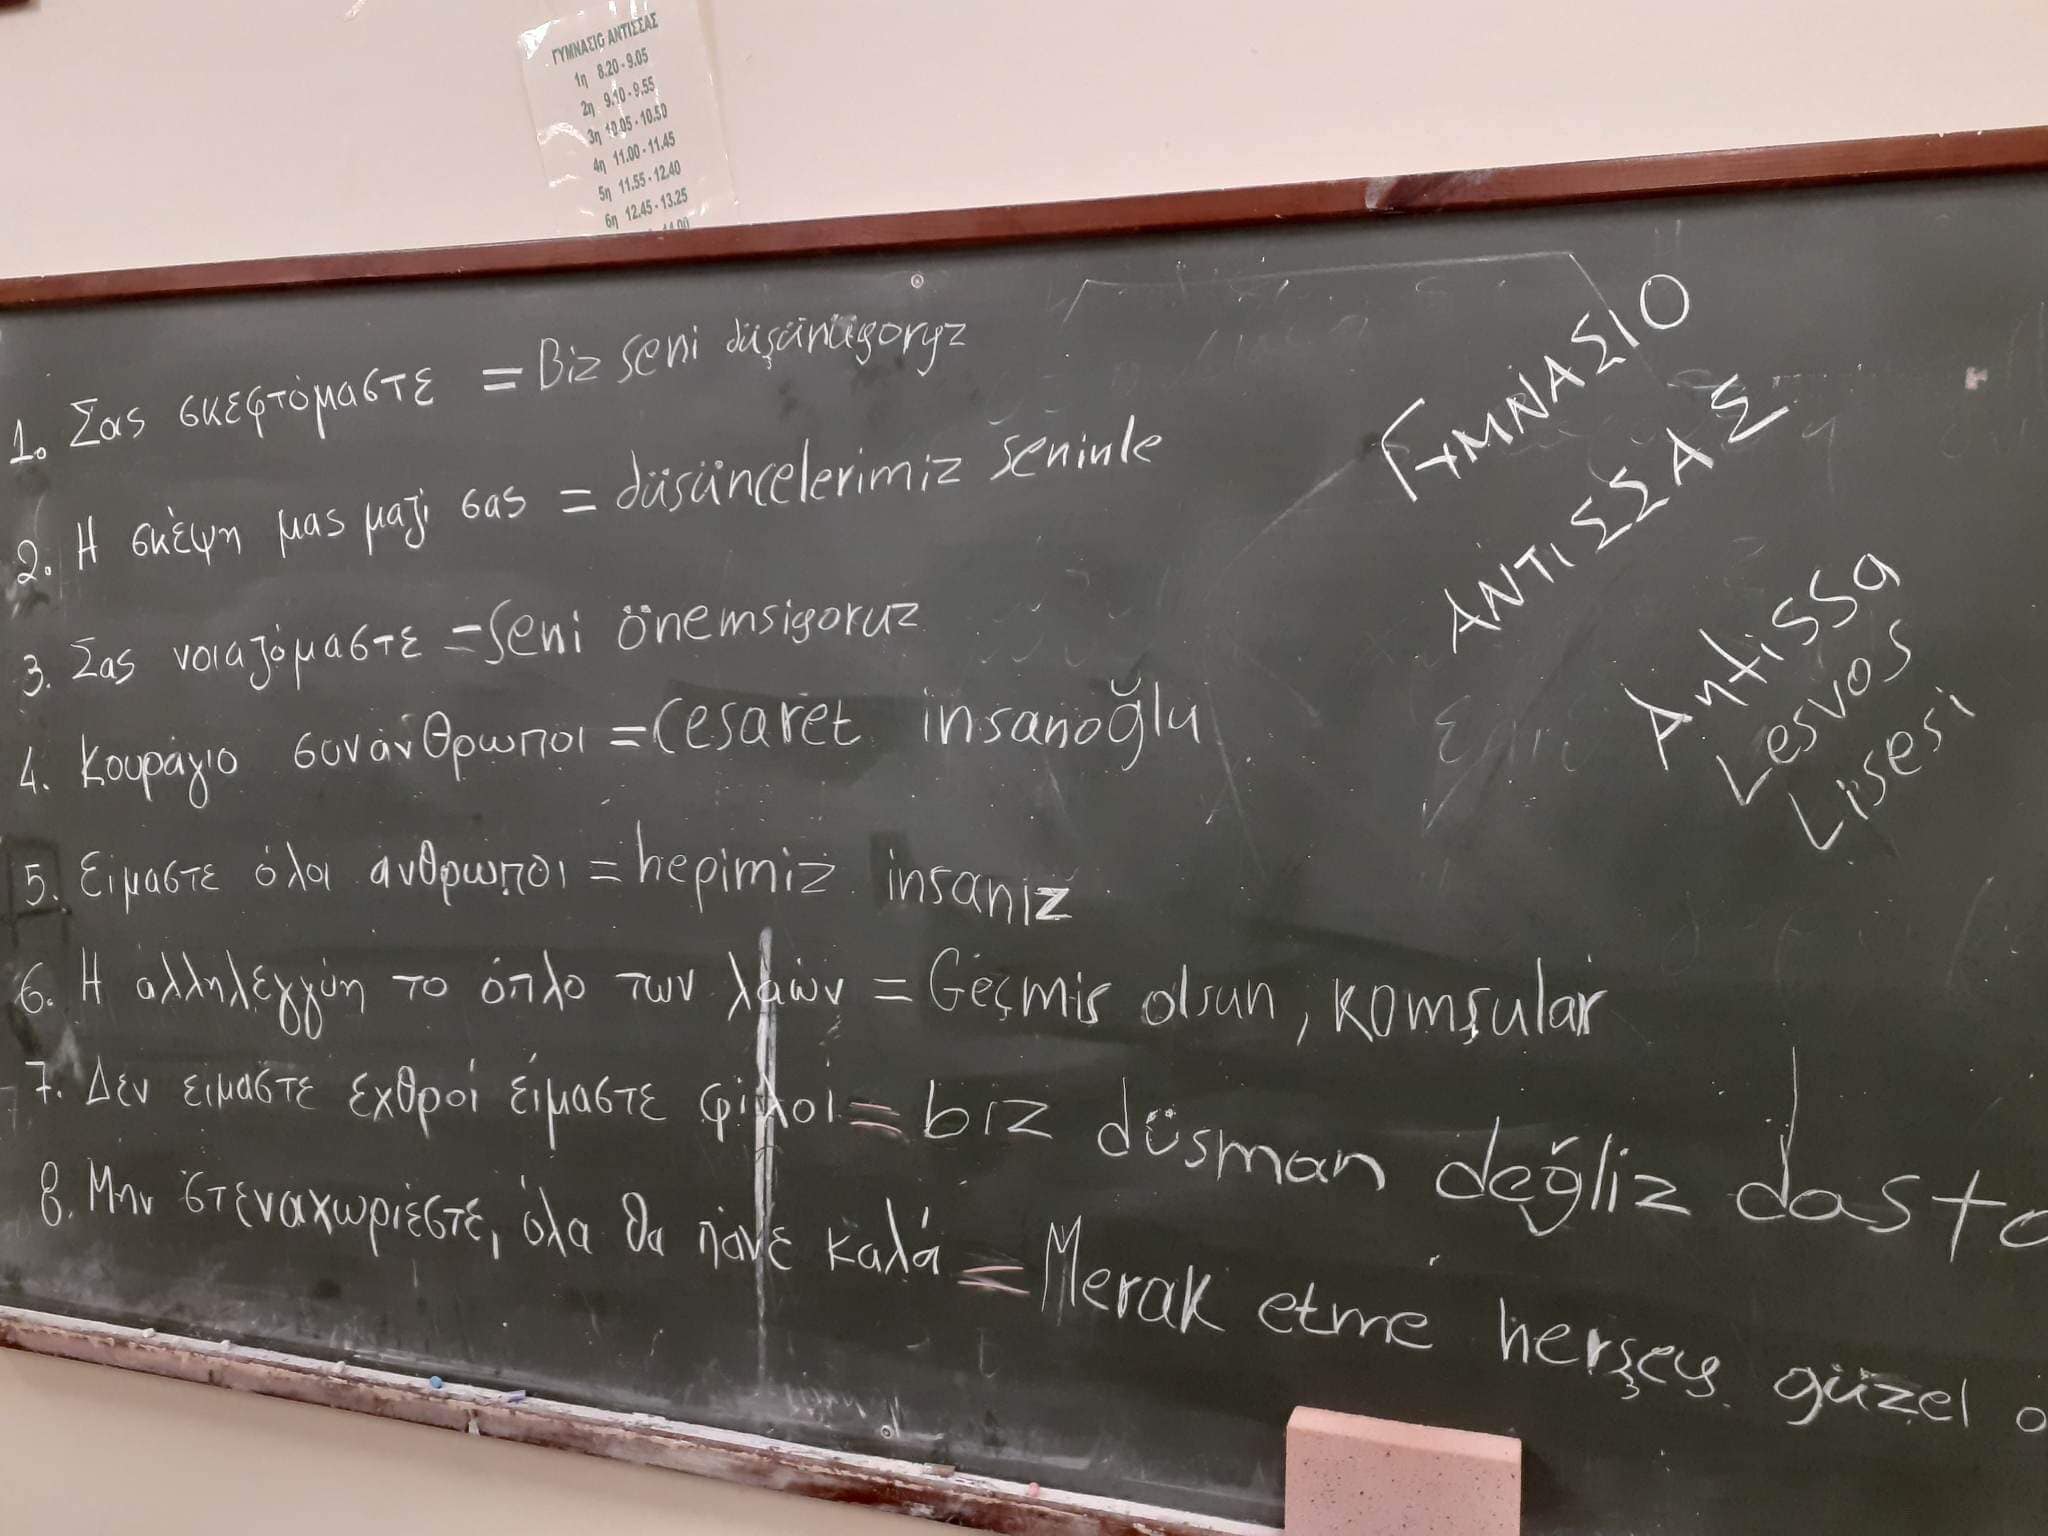 ΓΥΜΝΑΣΙΟ ΑΝΤΙΣΣΑΣ
1η 8.20 - 9.05
2η 9.10 - 9.55
3η 10.05 - 10.50
4η 11.00 - 11.45
5η 11.55 - 12.40
6η 12.45 - 13.25
14.00
1. Σας σκεφτόμαστε = Biz seni düşünüyoryz
2. Η σκέψη μας μαζί σας = düşüncelerimiz seninle
3. Σας νοιαζόμαστε = Seni önemsiyoruz
4. Κουράγιο συνάνθρωποι = Cesaret insanoğlu
5. Είμαστε όλοι άνθρωποι = hepimiz insanız
6. Η αλληλεγγύη το όπλο των λαών = Geçmiş olsun, komşular
7. Δεν είμαστε εχθροί είμαστε φίλοι = biz düsman değliz dosto
8. Μην στεναχωριέστε, όλα θα πάνε καλά = Merak etme herşey güzel o
ΓΥΜΝΑΣΙΟ
ΑΝΤΙΣΣΑΣ
Antissa
Lesvos
Lisesi